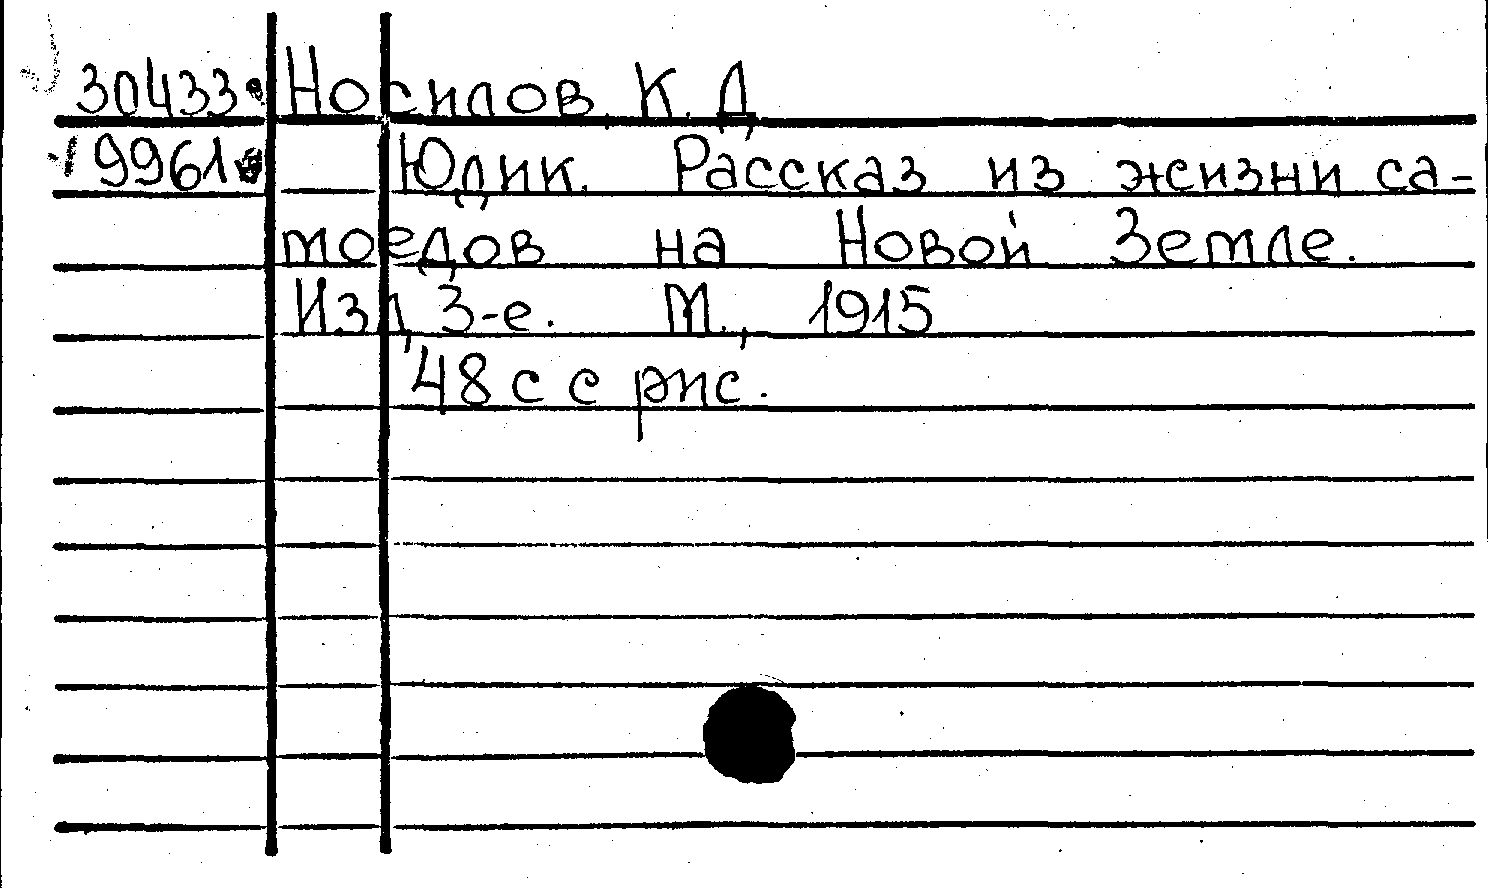 30433 Носилов, К. Д.
9961 Юдик. Рассказ из жизни са-
моедов на Новой Земле.
Изд. 3-е. М., 1915
48 с с рис.